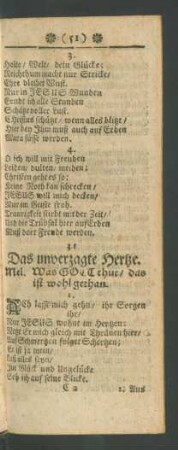 (51)
3.
Halte / Welt / dein Glücke:
Reichthum macht nur Stricke /
Ehre bleibet Wust.
Nur in JESUS Wunden
Sind ich alle Stunden
Schätze voller Lust.
Christus schütz / wenn alles blitzt /
Hier bey Ihm muß auch auf Erden
Mara süsse werden.
4.
O ich will mit Freuden
Leiden / dulten / meiden:
Christen geht es so:
Keine Noth kan schrecken /
JESUS will mich decken /
Nur im Geiste froh.
Traurigkeit flieht mit der Zeit /
Und die Trübsal hier auf Erden
Muß dort Freude werden.
Das unverzagte Hertze.
Mel. Was GOtt thut / das
ist wohl gethan.
1.
ACh lasst mich gehn / ihr Sorgen
ihr /
Nur JESUS wohnt im Hertzen:
Netzt ihr mich gleich mit Thränen hier /
Auf Schmertzen folget Schertzen:
Er ist ja mein /
Ich alles sein /
In Glück und Ungelücke
Seh ich auf seine Blicke.
C 2
2. Aus